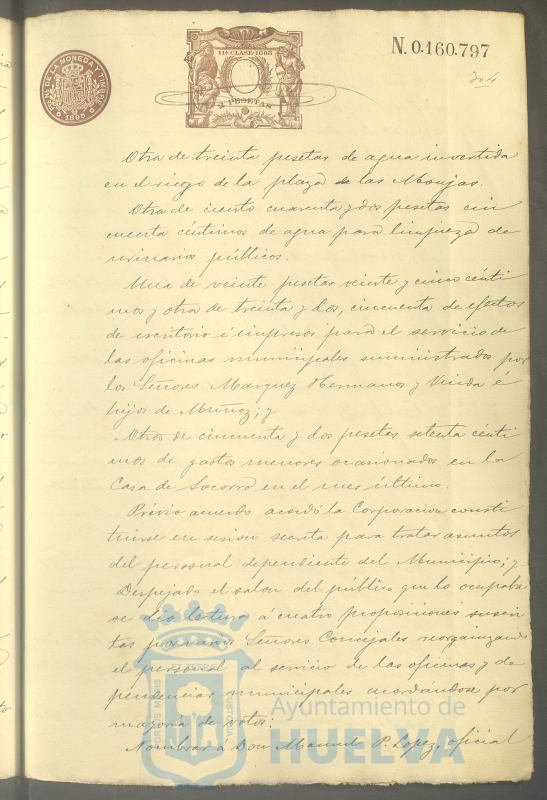 FAB. NAL. DE LA MONEDA Y TIMBRE
1895
11ª CLASE-1895
2 PESETAS
N.0.160.797
304
Otra de treinta pesetas de agua invertida
en el riego de la plaza de las Monjas.
Otra de ciento cuarenta y dos pesetas cin
cuenta céntimos de agua para limpieza de
urinarios públicos.
Una de veinte pesetas veinte y cinco cénti
mos y otra de treinta y dos, cincuenta de efectos
de escritorio é impresos para el servicio de
las oficinas municipales suministrados por
los Señores Marquez Hermanos y Viuda é
hijos de Muñoz; y
Otra de cincuenta y dos pesetas setenta cénti
mos de gastos menores ocasionados en la
Casa de Socorro en el mes último.
Prévio acuerdo acordó la Corporacion consti
tuirse en sesion secreta para tratar asuntos
del personal dependiente del Municipio; y
Despejado el salon del público que lo ocupaba
se dió lectura á cuatro proposiciones suscri
tas por varios Señores Concejales reorganizando
el personal al servicio de las oficinas y de
pendencias municipales acordándose por
mayoría de votos:
Nombrar á Don Manuel P. Lopez, oficial
PORTUS MARIS
ET TERRE
CUSTODIA
Ayuntamiento de
HUELVA